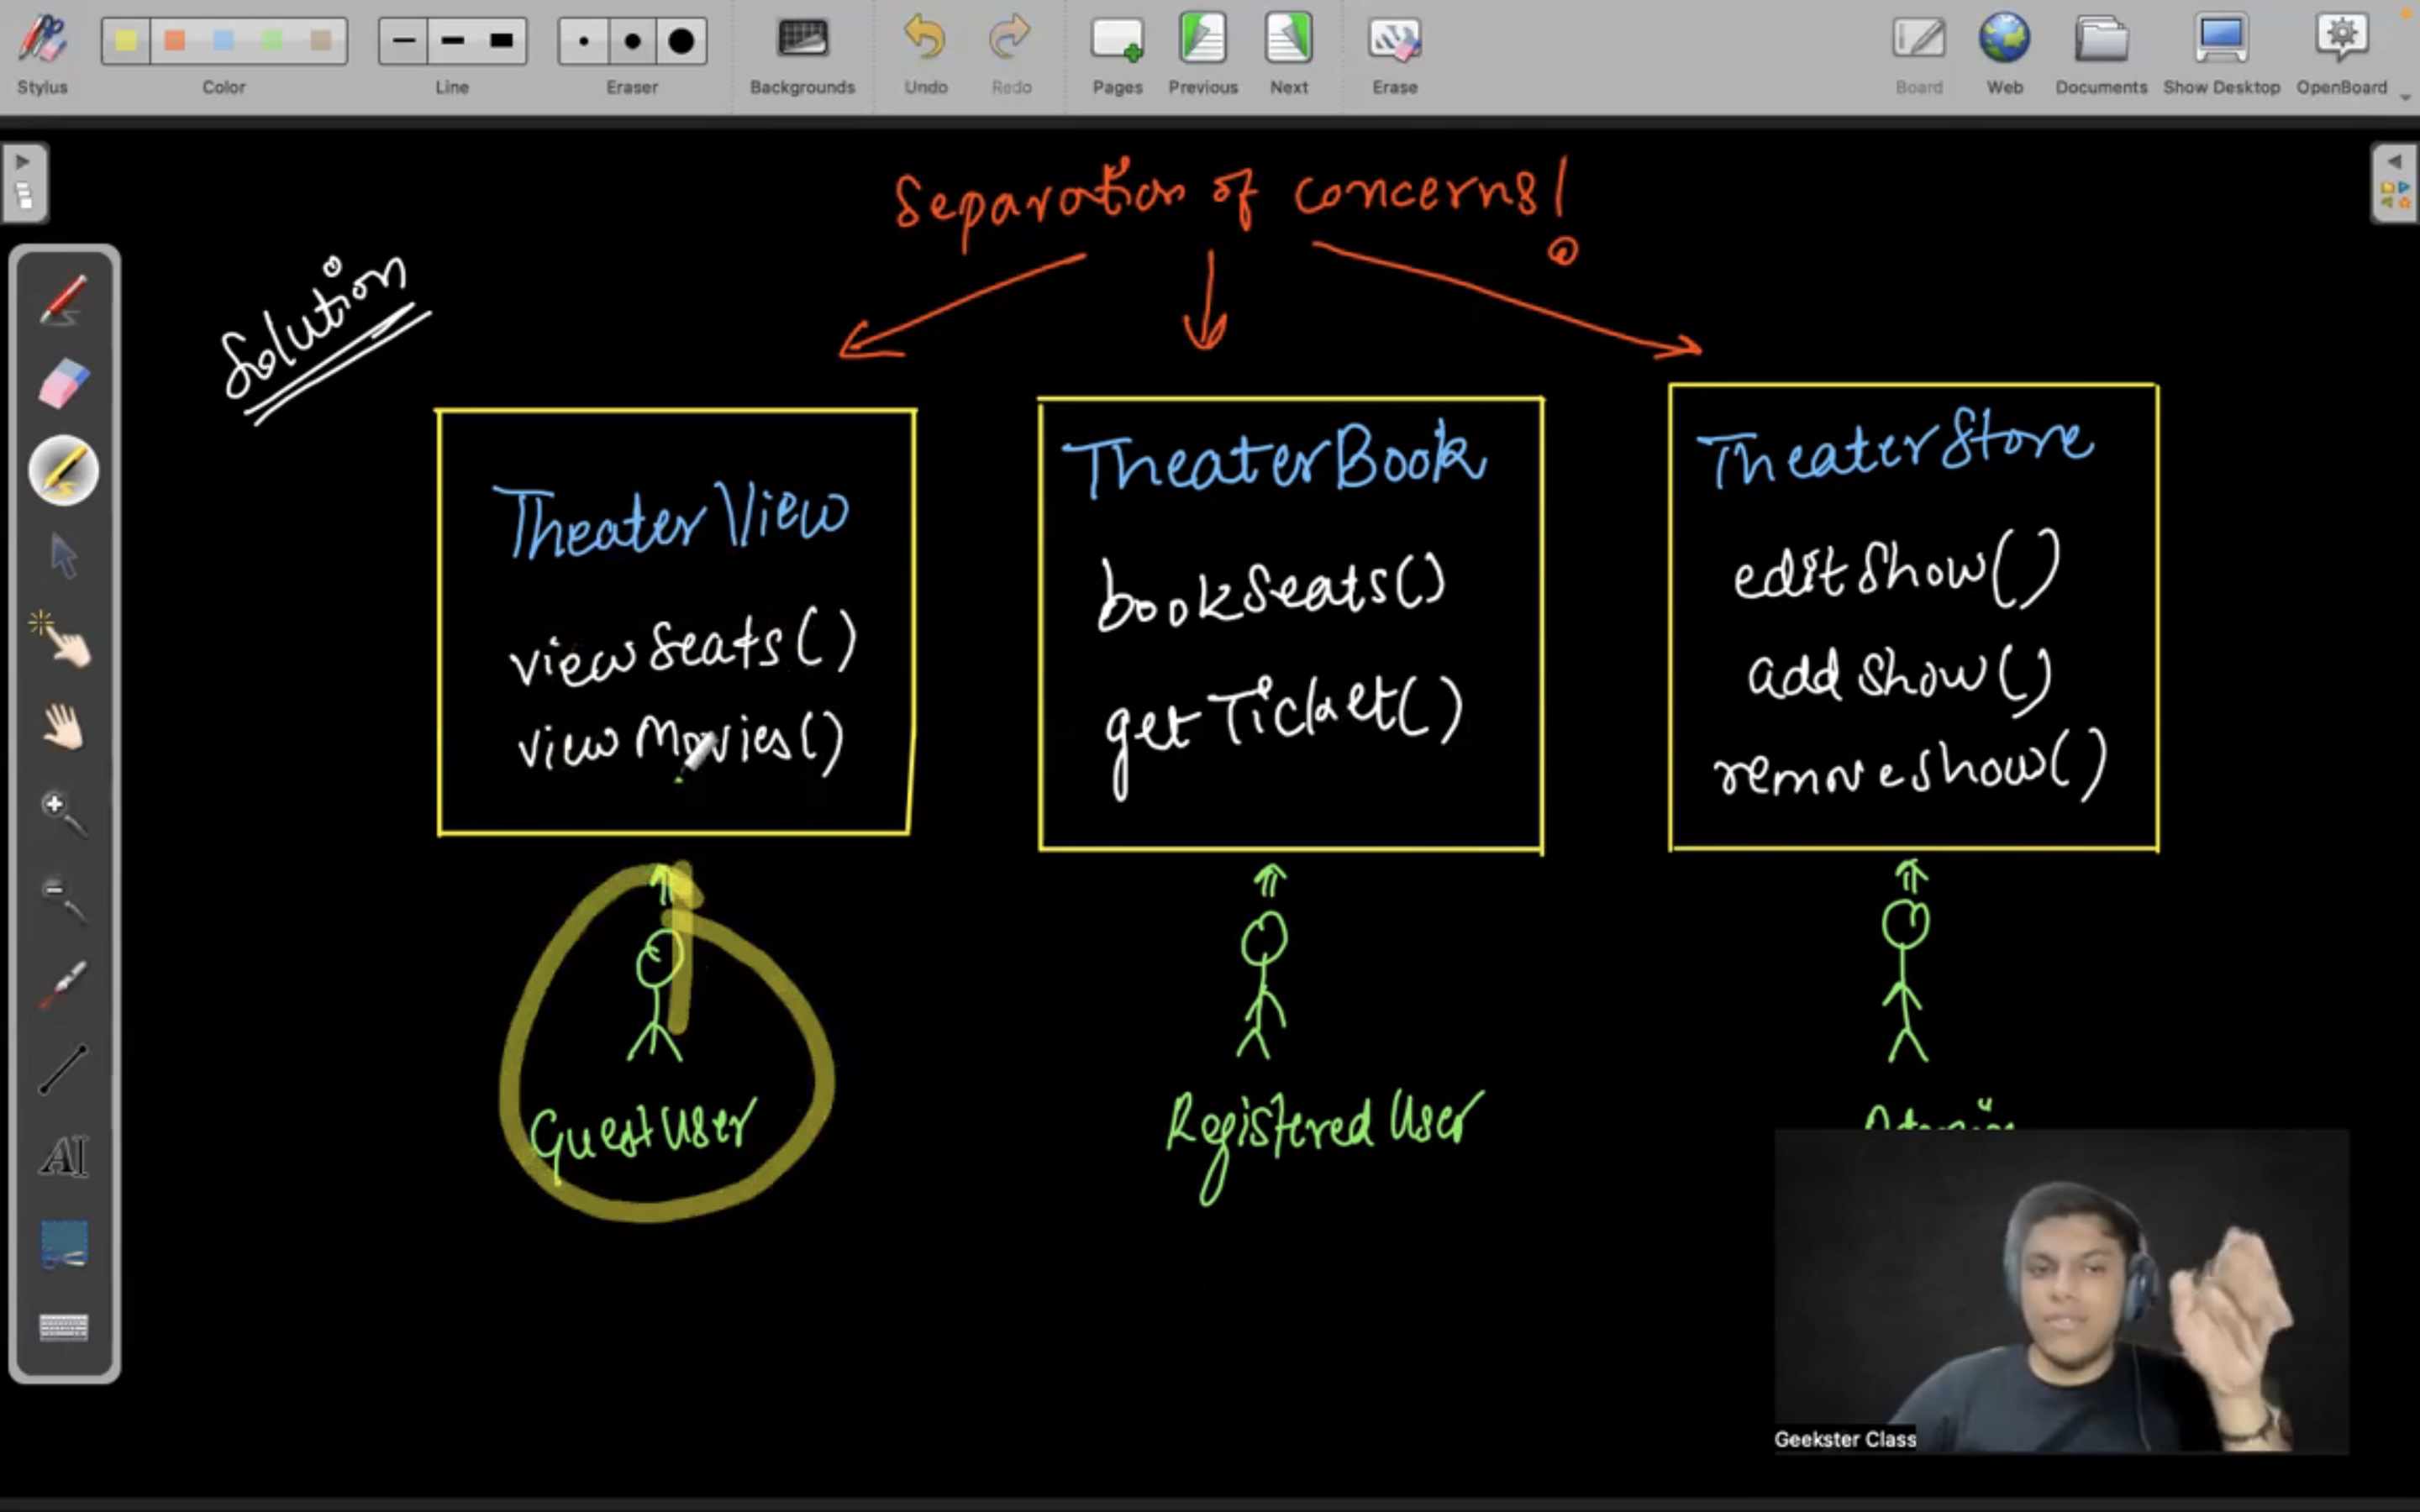 Stylus
Color
Line
Eraser
Backgrounds
Undo
Redo
Pages
Previous
Next
Erase
Board
Web
Documents
Show Desktop
OpenBoard
Separation of concerns!
Solution
TheaterView
viewSeats()
viewMovies()
TheaterBook
bookSeats()
getTicket()
TheaterStore
editShow()
addShow()
removeshow()
GuestUser
Registered User
AI
Geekster Class